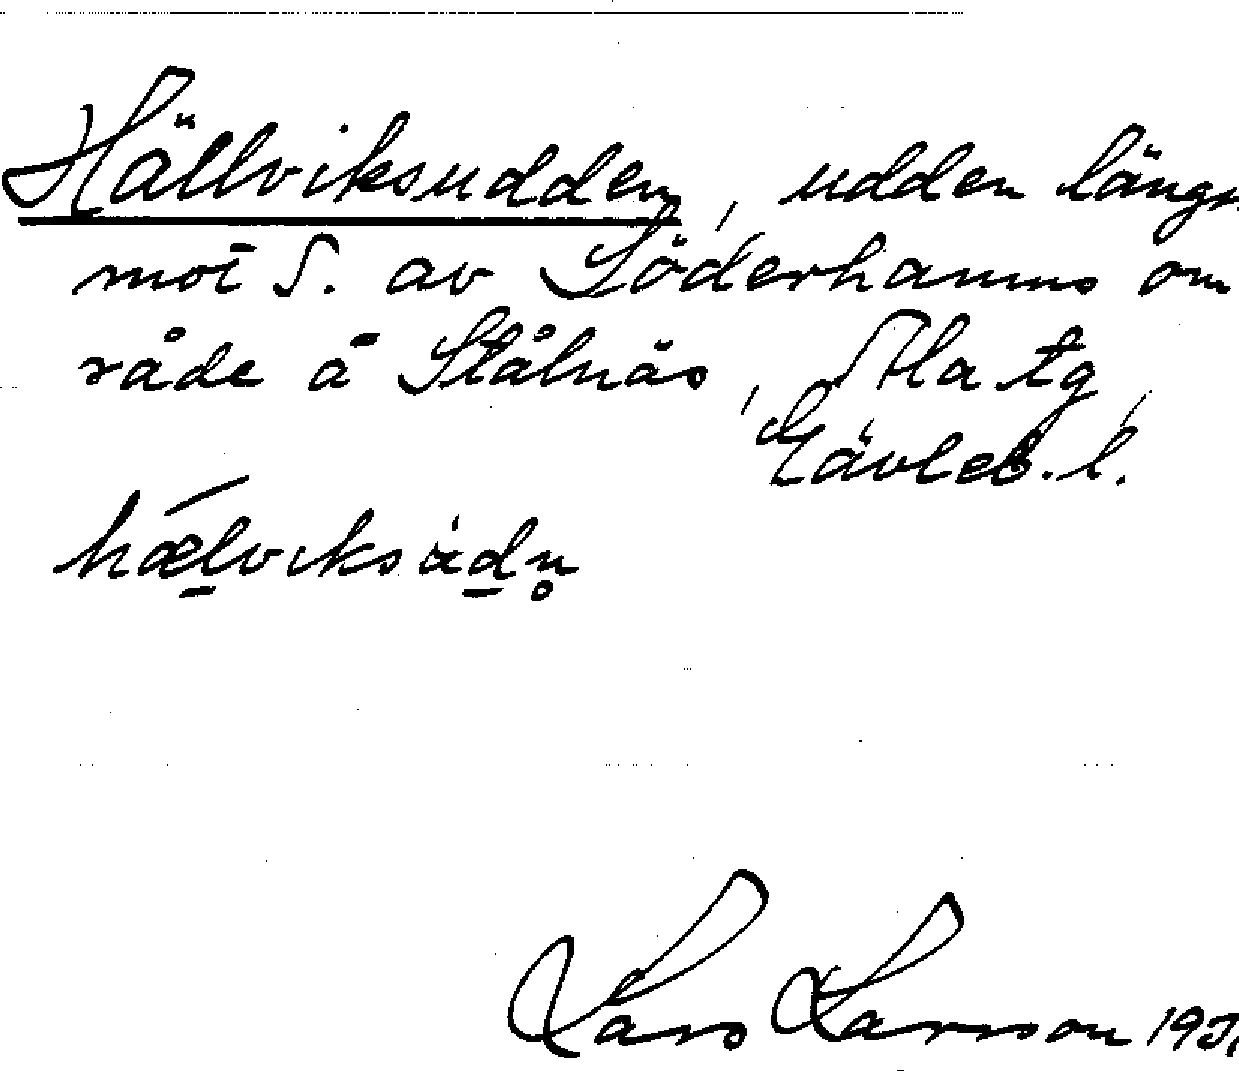 Hällviksudden, udden längs
mot S. av Söderhamns om
råde å Stålnäs, Ala tg,
Gävleb. l.
hælviksúdn̥
Lars Larsson